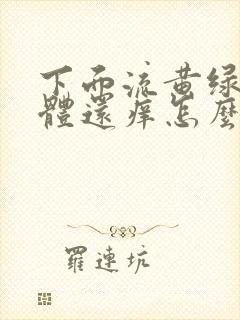 下面流黄绿
體還痒怎麼
羅連坑